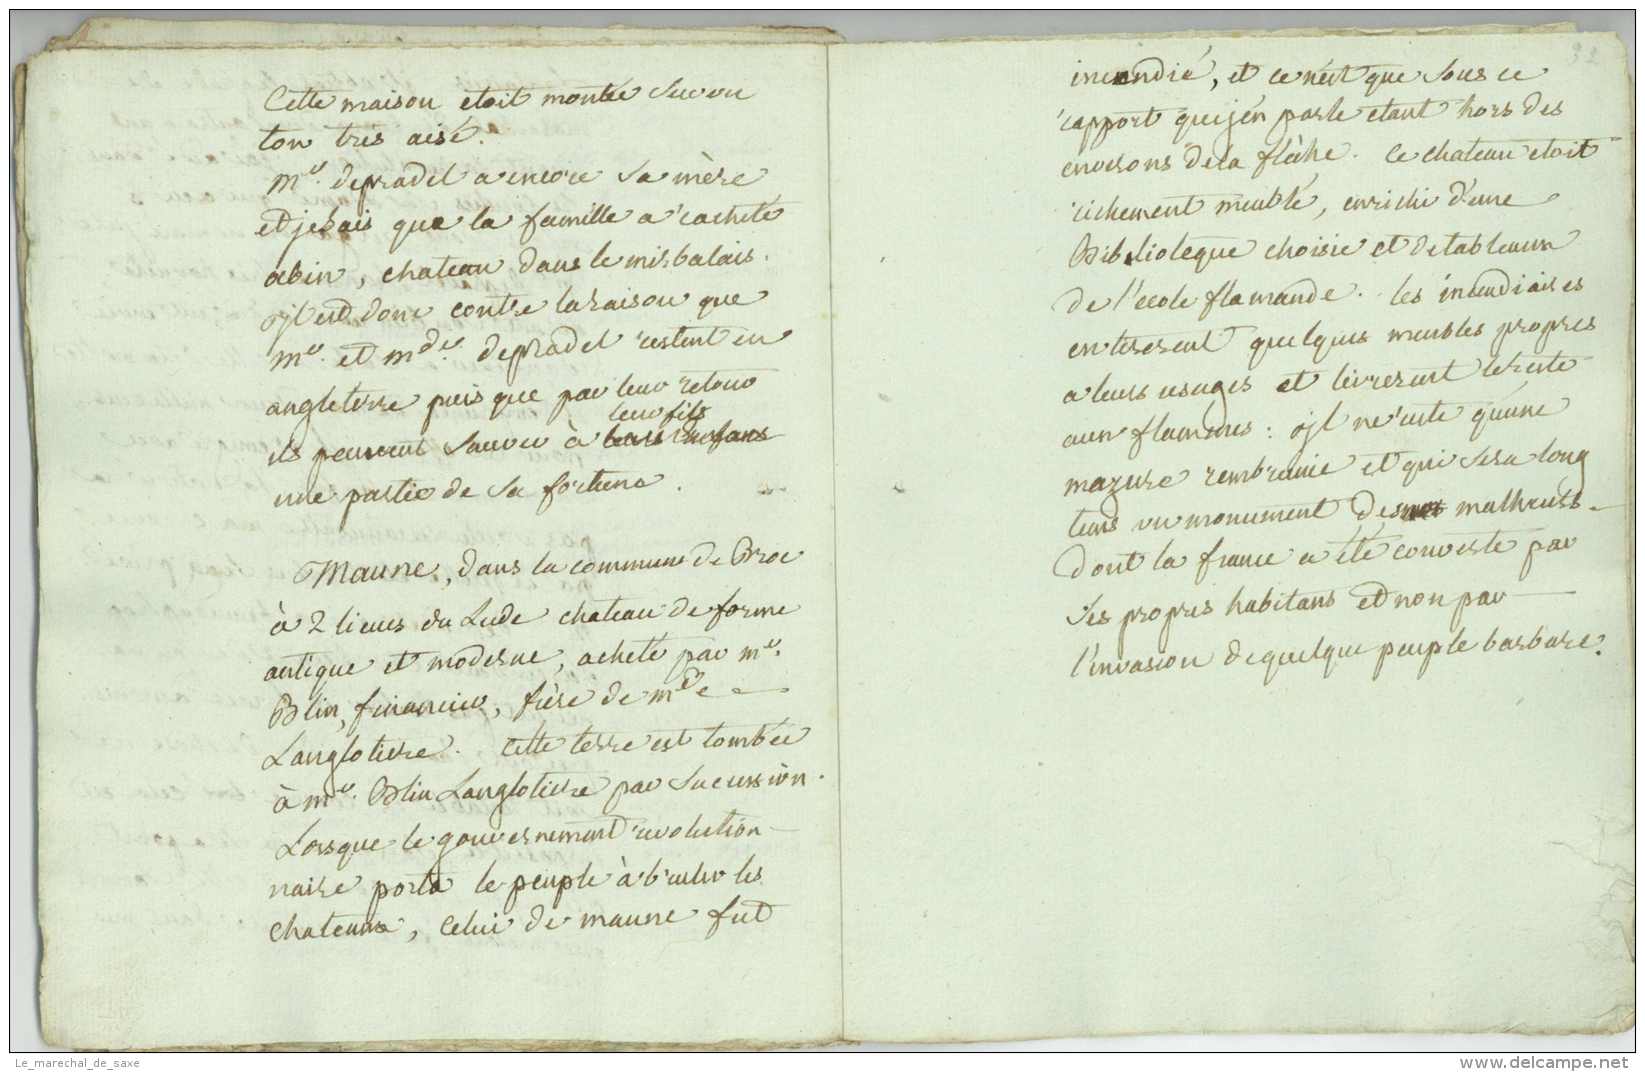 Cette maison etoit montée sur un
ton très aisé.
Mr. depradel a encore sa mère
et je sais que la famille a racheté
abin, chateau dans le mirbalais.
ojl est donc contre la raison que
mr. et mde. depradel restent en
angleterre puis que par leur retour
leur fils
ils peuvent sauver à leurs enfans
une partie de sa fortune.
Maune, dans la commune de Broc
à 2 lieues du Lude chateau de forme
antique et moderne, acheté par mr.
Blin, financier, frère de mde
Langlotiere. cette terre est tombée
à mr. Blin Langlotiere par sucession.
Lorsque le gouvernement revolution
naire porta le peuple à bruler les
chateaux, celui de maune fut
32
incendié, et ce n'est que sous ce
rapport que j'en parle etant hors des
environs de la flèche. ce chateau etoit
richement meublé, enrichi d'une
Biblioteque choisie et de tableaux
de l'ecole flamande. les incendiaires
en tirerent quelques meubles propres
a leurs usages et livrerent le reste
aux flammes: ojl ne reste qu'une
mazure rembrunie et qui sera long
tems un monument des malheurs
dont la france a été couverte par
ses propres habitans et non par
l'invasion de quelque peuple barbare.
Le_marechal_de_saxe
www.delcampe.net